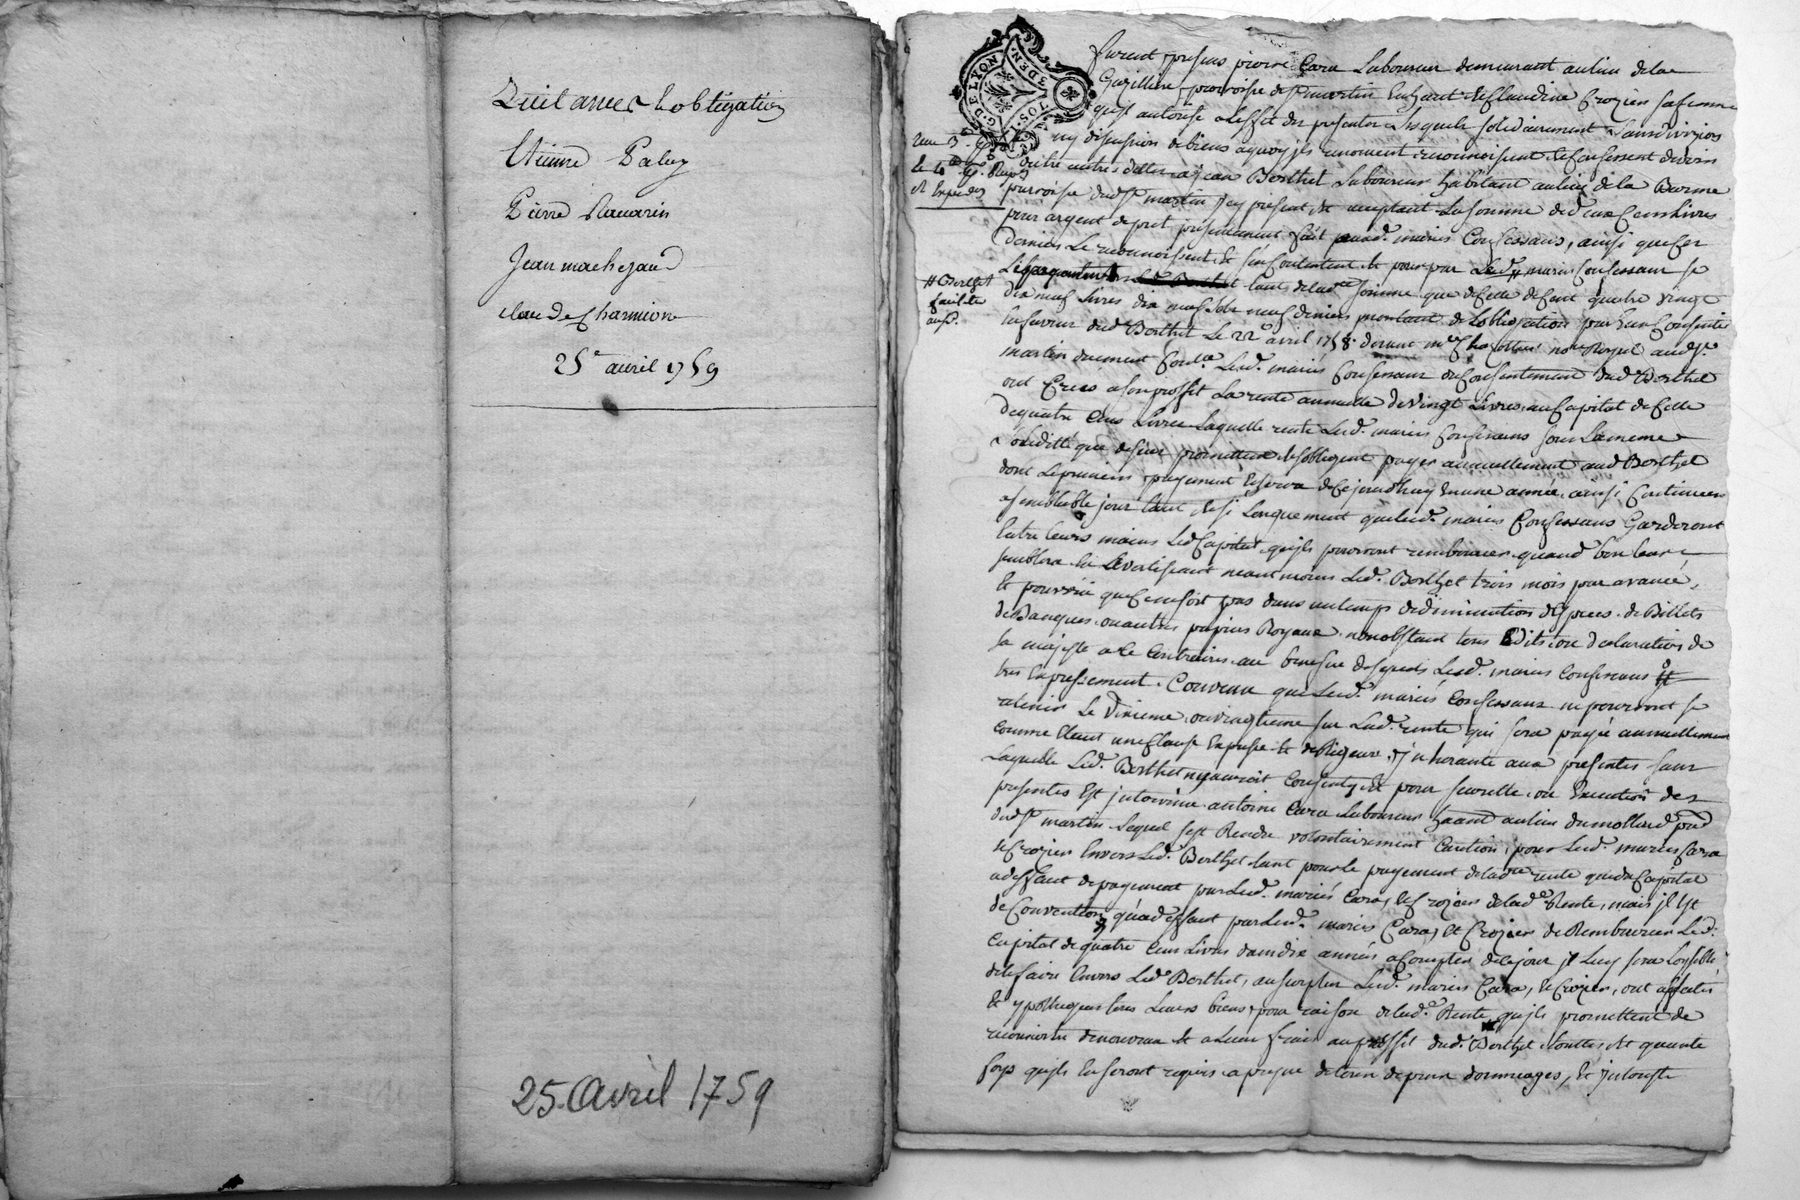 Quittance & obligation
Etienne Paley
Pierre Navarin
Jean machezaud
claude Charmion
25e avril 1759
25. Avril 1759
G.D.E LYON
Furent presens pierre Cara Laboureur demeurant au lieu dela
parroisse de St martin En haut & Claudine Crozier sa femme
quil autorise a Leffet des presentes Lesquels solidairement sans division
ny discussion de biens aquoy ils renoncent reconnoissent & Confessent devoir
a jean Berthet Laboureur habitant au lieu de la Burine
parroisse dud St martin jcy present & acceptant La somme de deux Cens Livres
pour argent de prest presentement fait auxd. mariés Confessans, ainsi que Ces
derniers Le reconnoissent & sen Contentent & pour par Lesd. mariés Confessans se
# Berthet
tant de lade somme que de Celle de Cent quatre vingt
dix neuf Livres dix neuf sols neuf deniers montant de Lobligation par Eux Consentie
En faveur dud Berthet Le 22e avril 1758. devant me nore Royal aud St
martin duement Conlle Lesd. mariés Confessans du Consentement dud Berthet
ont Créés a son proffit La rente annuelle de vingt Livres au Capital de Celle
de quatre Cens Livres Laquelle rente Lesd. mariés Confessans sous La meme
soliditté que dessus promettent & sobligent payer annuellement aud Berthet
dont Le premier payement Echerra de Cejourdhuy En une année, ainsi Continuer
a semblable jour tant & si Longuement que Lesd. mariés Confessans Garderont
Entre Leurs mains Led Capital, quils pourront rembourser quand bon Leur
semblera En avertissant neantmoins Led. Berthet trois mois par avance,
& pourvû que Ce ne soit pas dans un temps de diminution despeces de Billets
de Banques ou autres papiers Royaux nonobstant tous Edits ou declarations de
sa majesté a Ce Contraires au benefice desquels Lesd. mariés Confessans
tres Expressement. Convenu que Lesd. mariés Confessans ne pourront se
retenir Le dixieme ou vingtieme sur Lad. rente qui sera payée annuellement
Comme Etant une Clause Expresse & de Rigueur, & jnherante aux presentes sans
Laquelle Led. Berthet n'y auroit Consenty, & pour sureté & Execution des
presentes Est jntervenu antoine Cara Laboureur au lieu du mollard
dud St martin Lequel sest Rendu volontairement Caution, pour Lesd. mariés Cara
& Crozier Envers Led. Berthet tant pour le payement de lade rente que du Capital
a deffaut de payement par Lesd. mariés Cara, & Crozier de lade Rente, mais jl Est
de Convention, qua deffaut par Lesd. mariés Cara, & Crozier de Rembourser Led.
Capital de quatre Cens Livres dans dix années a Compter de Ce jour jl Luy sera Loysible
de le faire Envers Led. Berthet, au surplus Lesd. mariés Cara, & Crozier, ont affectés
& ypothequés tous Leurs biens, pour raison de lade Rente quils promettent de
reconnoitre de nouveau & a Leurs frais au proffit dud. Berthet touttes & quante
foys quils En seront requis a peyne de tous depens dommages, & jnterests